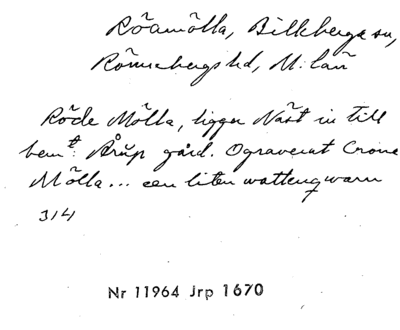 Röamölla, Billeberga sn,
Rönnebergs hd, M. län
Röde Mölla, ligger Näst in till
bemt: Årup gård. Ograverat Crone
Mölla... een liten wattenqwarn
314
Nr 11964 Jrp 1670